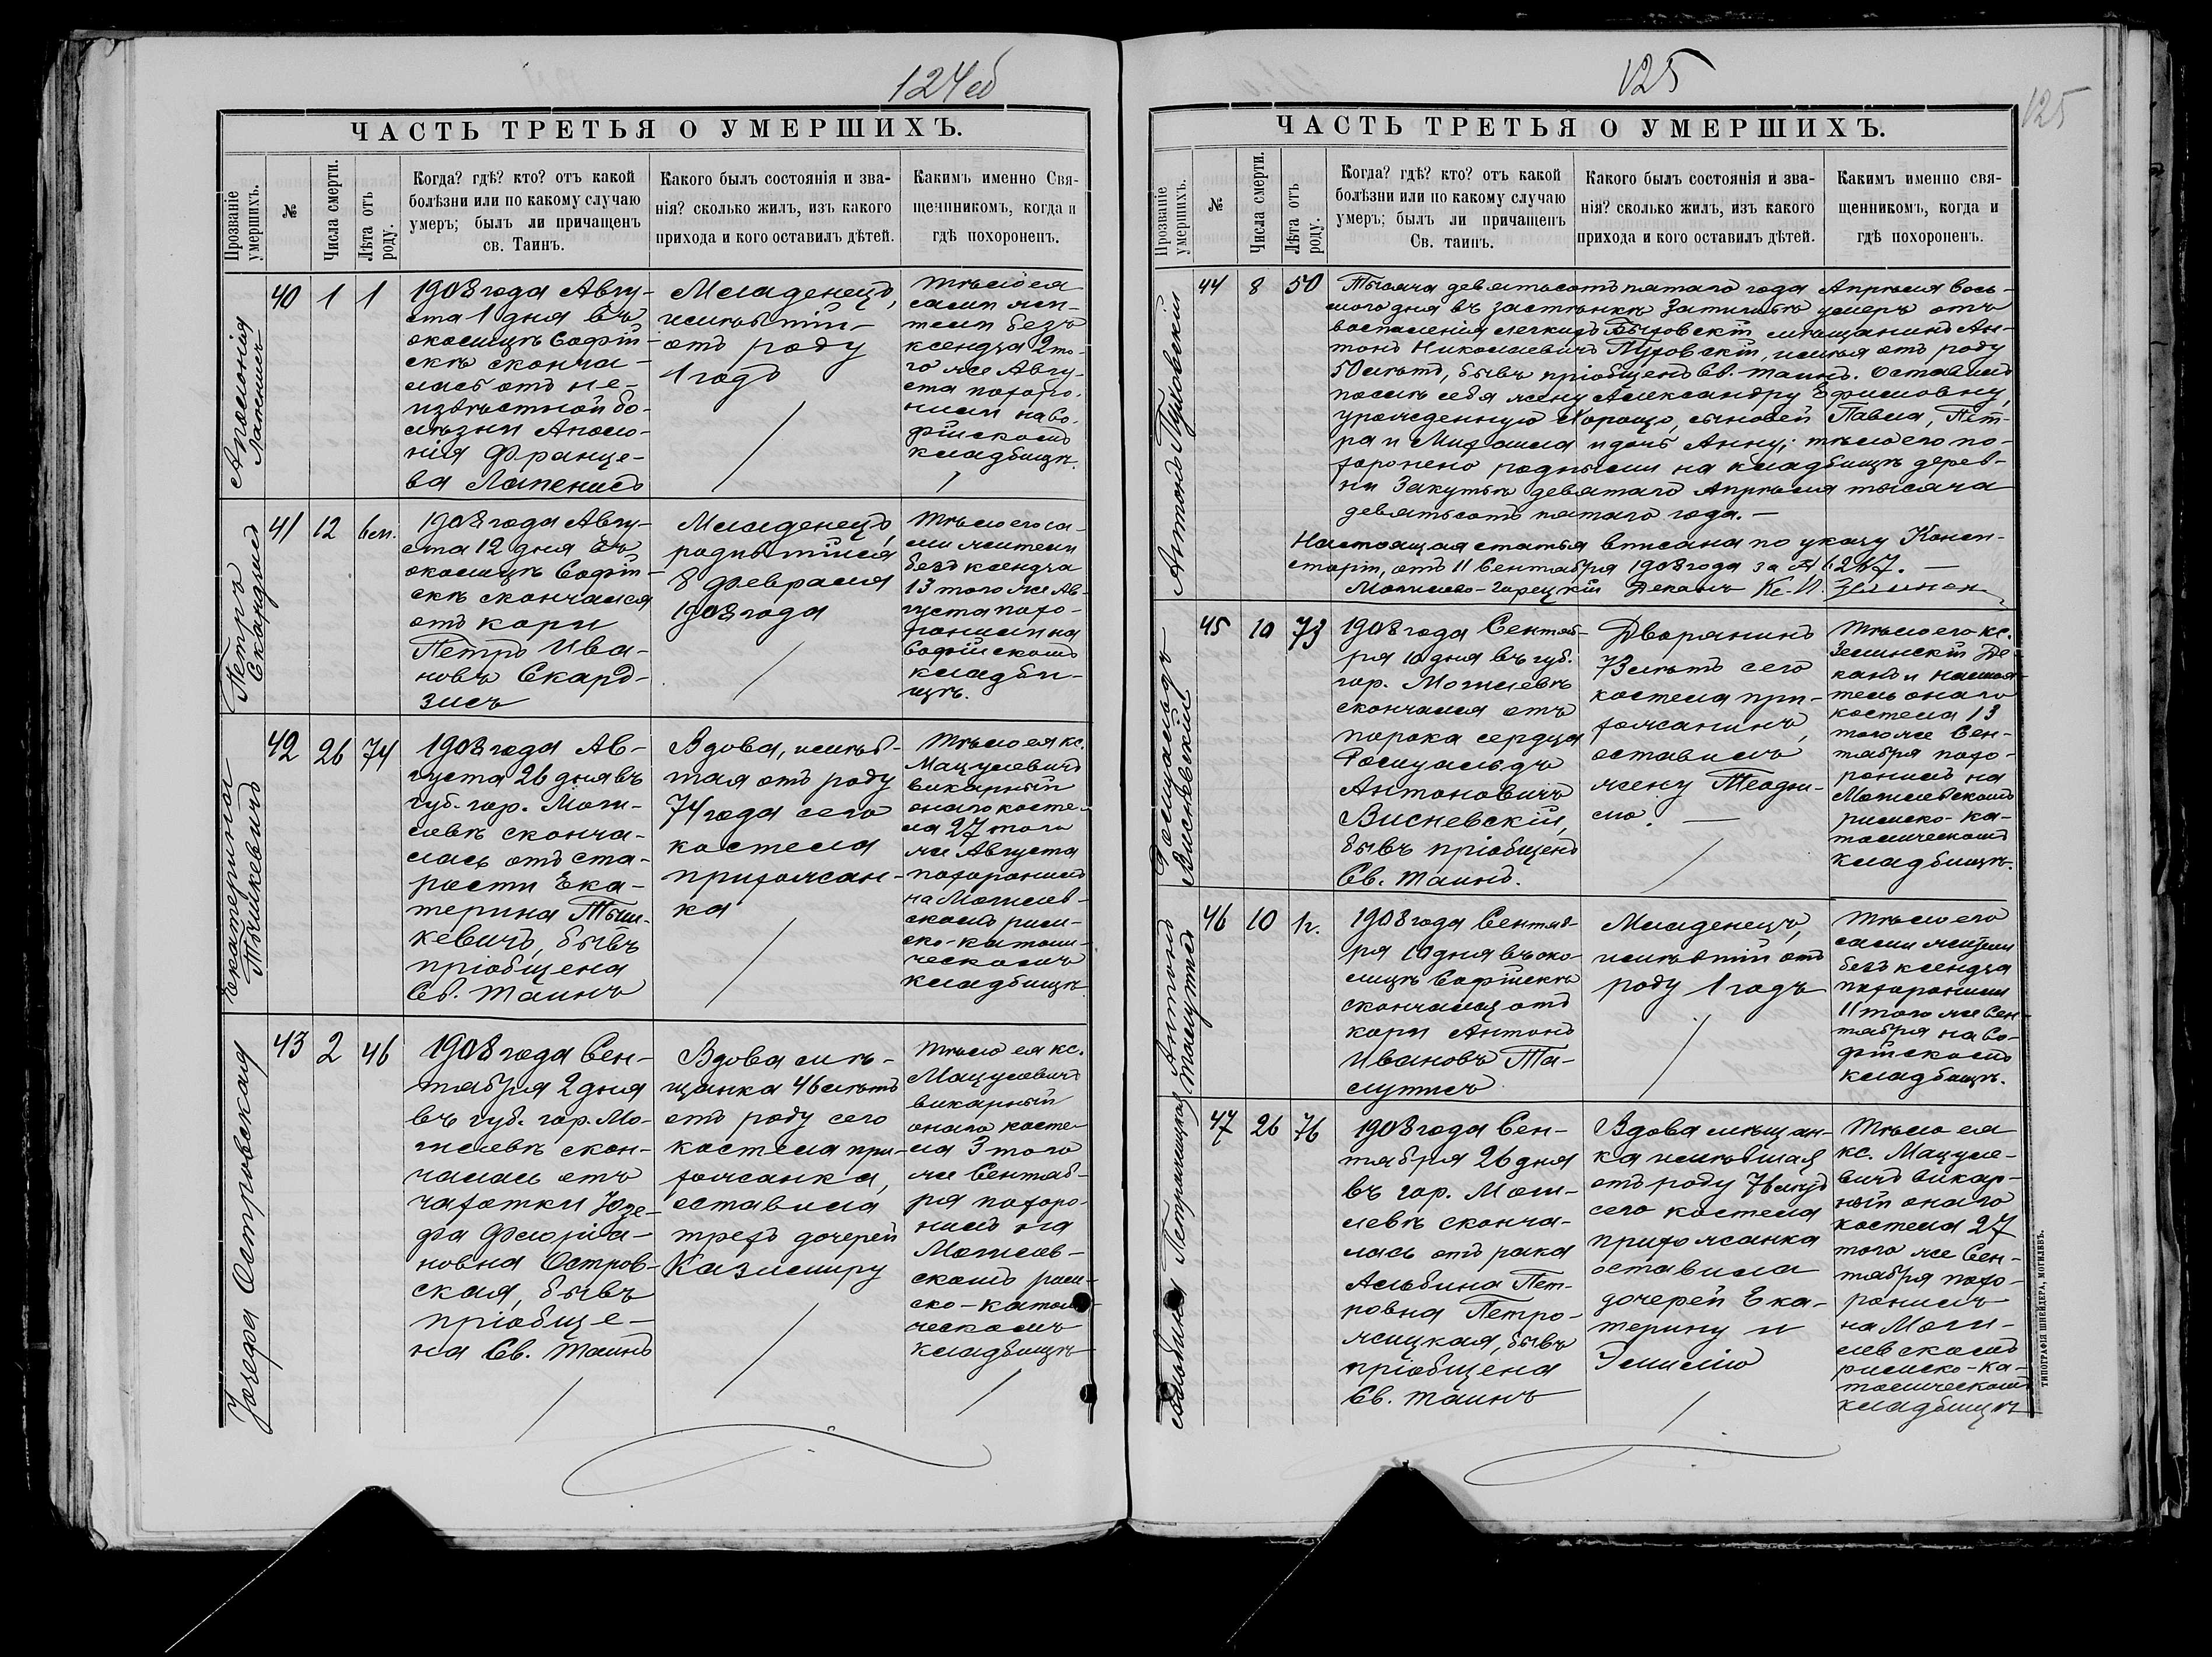 124об
ЧАСТЬ ТРЕТЬЯ О УМЕРШИХЪ.
Прозваніе умершихъ.
№
Числа смерти.
Лѣта отъ роду.
Когда? гдѣ? кто? отъ какой
болѣзни или по какому случаю
умеръ; былъ ли причащенъ
св. Таинъ.
Какого былъ состоянія и зва-
нія? сколько жилъ, изъ какого
прихода и кого оставилъ дѣтей.
Какимъ именно Свя-
щенникомъ, когда и
гдѣ похороненъ.
Аполонія
Лапенисъ
40
1
1
1908 года Авгу-
ста 1 дня въ
околицѣ Софій-
скѣ сконча-
лась отъ не-
извѣстной бо-
лѣзни Аполо-
нія Франце-
ва Лапенисъ
Младенецъ,
имѣвшій
отъ роду
1 годъ
Тѣло ея
сами жи-
тели безъ
ксендза 2 то-
го же Авгу-
ста похоро-
нили на Со-
фійскомъ
кладбищѣ.
Петръ
Скардзисъ
41
12
6 м.
1908 года Авгу-
ста 12 дня въ
околицѣ Софій-
скѣ скончался
отъ кори
Петръ Ива-
новъ Скард-
зисъ
Младенецъ,
родившійся
8 Февраля
1908 года
Тѣло его са-
ми жители
безъ ксендза
13 того же Ав-
густа похо-
ронили на
Софійскомъ
кладби-
щѣ.
Екатерина
Тышкевичъ
42
26
74
1908 года Ав-
густа 26 дня въ
губ. гор. Моги-
левѣ сконча-
лась отъ ста-
рости Ека-
терина Тыш-
кевичъ, бывъ
пріобщена
Св. Таинъ
Вдова, имѣв-
шая отъ роду
74 года сего
костела
прихожан-
ка
Тѣло ея кс.
Мацулевичъ
викарный
онаго косте-
ла 27 того
же Августа
похоронилъ
на Могилев-
скомъ рим-
ско-католи-
ческомъ
кладбищѣ
Іозефа Островская
43
2
46
1908 года Сен-
тября 2 дня
въ губ. гор. Мо-
гилевѣ скон-
чалась отъ
чахотки Юзе-
фа Флоріа-
новна Остров-
ская, бывъ
пріобще-
на Св. Таинъ
Вдова мѣ-
щанка 46 лѣтъ
отъ роду сего
костела при-
хожанка,
оставила
трехъ дочерей
Казимиру
Тѣло ея кс.
Мацулевичъ
викарный
онаго косте-
ла 3 того
же Сентяб-
ря похоро-
нилъ на
Могилев-
скомъ рим-
ско-католи-
ческомъ
кладбищѣ
125
125
ЧАСТЬ ТРЕТЬЯ О УМЕРШИХЪ.
Прозваніе умершихъ.
№
Числа смерти.
Лѣта отъ роду.
Когда? гдѣ? кто? отъ какой
болѣзни или по какому случаю
умеръ; былъ ли причащенъ
Св. таинъ.
Какого былъ состоянія и зва-
нія? сколько жилъ, изъ какого
прихода и кого оставилъ дѣтей.
Какимъ именно свя-
щенникомъ, когда и
гдѣ похороненъ.
Антонъ Пуховскій
44
8
50
Тысяча девятьсотъ пятаго года Апрѣля вось-
мого дня въ застѣнкѣ Затишьѣ умеръ отъ
воспаленія легкихъ Быховскій мѣщанинъ Ан-
тонъ Николаевичъ Пуховскій, имѣя отъ роду
50 лѣтъ, бывъ пріобщенъ Св. Таинъ. Оставилъ
послѣ себя жену Александру Ефимовну,
урожденную Хорощо, сыновей Павла, Пет-
ра и Михаила и дочь Анну; тѣло его по-
хоронено родными на кладбищѣ дерев-
ни Закутьѣ девятаго Апрѣля тысяча
девятьсотъ пятаго года. —
Настоящая статья вписана по указу Конси-
сторіи, отъ 11 Сентября 1908 года за №
Могилево-Горецкій Деканъ Кс. И.
Ромуальдъ
Висневскій
45
10
73
1908 года Сентяб-
ря 10 дня въ губ.
гор. Могилевѣ
скончался отъ
порока сердца
Ромуальдъ
Антоновичъ
Висневскій,
бывъ пріобщенъ
Св. Таинъ.
Дворянинъ
73 лѣтъ сего
костела при-
хожанинъ,
оставилъ
жену Теофи-
лю. —
Тѣло его кс.
Зелинскій Де-
канъ и настоя-
тель онаго
костела 13
того же Сен-
тября похо-
ронилъ на
Могилевскомъ
римско-ка-
толическомъ
кладбищѣ.
Антонъ
Тамутисъ
46
10
1 г.
1908 года Сентяб-
ря 10 дня въ око-
лицѣ Софійскѣ
скончался отъ
кори Антонъ
Ивановъ Та-
мутисъ
Младенецъ,
имѣвшій отъ
роду 1 годъ
Тѣло его
сами жители
безъ ксендза
похоронили
11 того же Сен-
тября на Со-
фійскомъ
кладбищѣ.
Альбина Петрожицкая
47
26
76
1908 года Сен-
тября 26 дня
въ гор. Моги-
левѣ сконча-
лась отъ рака
Альбина Пет-
ровна Петро-
жицкая, бывъ
пріобщена
Св. Таинъ
Вдова мѣщан-
ка имѣвшая
отъ роду 76 лѣтъ
сего костела
прихожанка
оставила
дочерей Ека-
терину и
Эмилію
Тѣло ея
кс. Мацуле-
вичъ викар-
ный онаго
костела 27
того же Сен-
тября похо-
ронилъ
на Моги-
левскомъ
римско-ка-
толическомъ
кладбищѣ
ТИПОГРАФІЯ ШНЕЙДЕРА, МОГИЛЕВЪ.